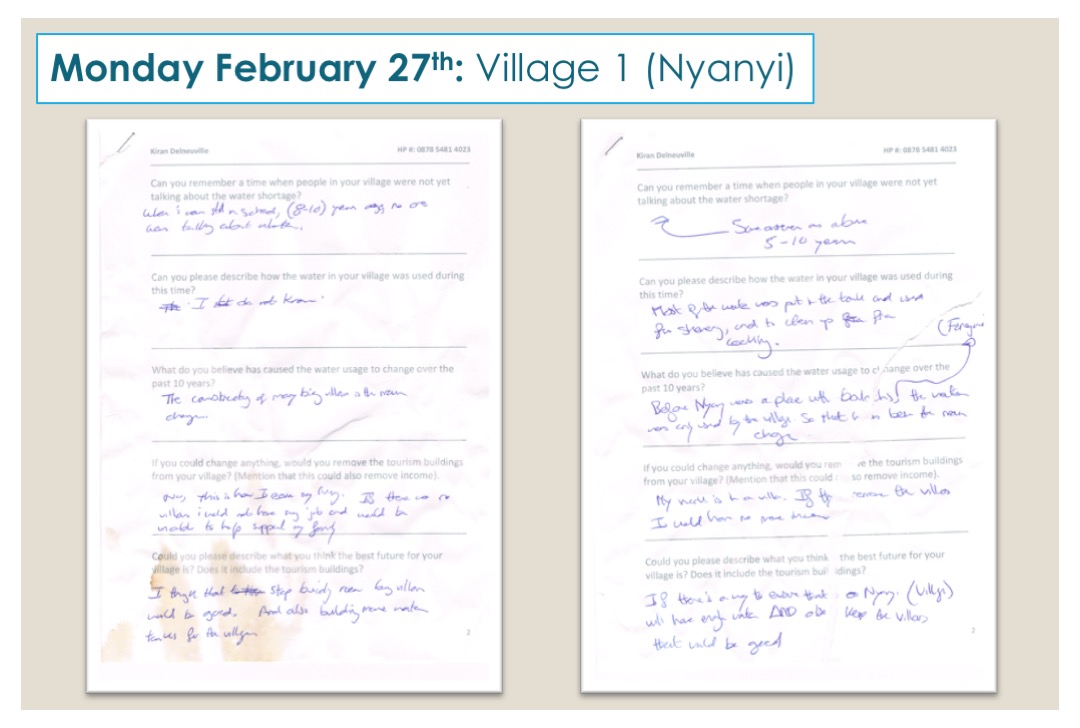 Monday February 27th: Village 1 (Nyanyi)
Kiran Delneuville HP #: 0878 5481 4023
Can you remember a time when people in your village were not yet
talking about the water shortage?
When i was still in school, (8-10) years ago no one
was talking about water.
Can you please describe how the water in your village was used during
this time?
I do not know.
What do you believe has caused the water usage to change over the
past 10 years?
The of many big villas is the main
change.
If you could change anything, would you remove the tourism buildings
from your village? (Mention that this could also remove income).
this is how I earn my If there was no
villas i would not have my job and would be
unable to help support my family
Could you please describe what you think the best future for your
village is? Does it include the tourism buildings?
I think that stop building more big villas
would be good. And also building more water
tanks for the villagers
2
Kiran Delneuville HP #: 0878 5481 4023
Can you remember a time when people in your village were not yet
talking about the water shortage?
Same answer as above
5-10 years
Can you please describe how the water in your village was used during
this time?
Most of the water was put in the tank and used
for showering, and to clean up from
cooking.
What do you believe has caused the water usage to change over the
past 10 years?
Before Nyanyi was a place with the water
was only used by the village. So that has been the main
change
If you could change anything, would you rem ve the tourism buildings
from your village? (Mention that this could so remove income).
My work is in a villa. If remove the villas
I would have no more income
Could you please describe what you think the best future for your
village is? Does it include the tourism buil dings?
If there's a way to ensure that Nyanyi (Village)
will have enough water AND also keep the villas
that would be good
2